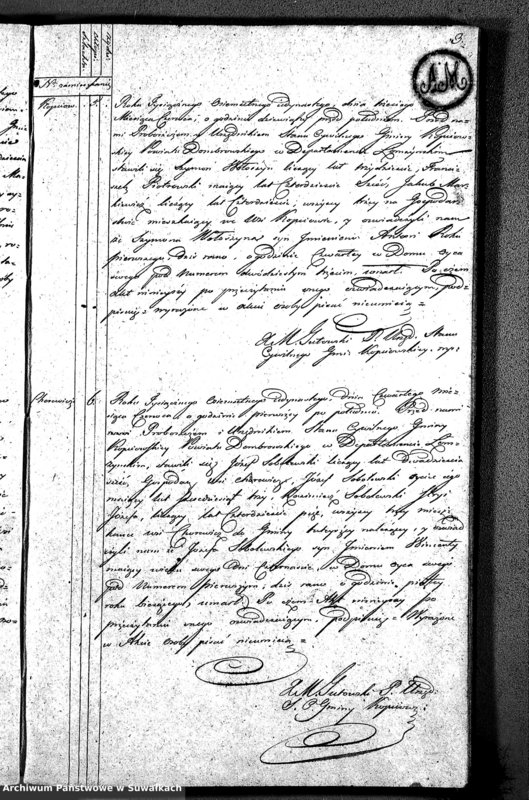 3.
AM
Nr zamieszkania
Kopciow. 5.
Roku Tysiącznego Osiemsetnego Iedynastego, dnia
Miesiąca Czerwca, o godzinie dziewiątej przed południem. Przed na-
mi Proboszczem, Urzędnikiem Stanu Cywilnego Gminy Kopciow-
skiey Powiatu Dombrowskiego w Departamencie Łomżyńskim
stawili się Szymon Wołoczyn liczący lat trzydzieście, Franci-
szek Piotrowski maiący lat Czterdzieście Sześć, Jakub Mar-
kiewicz liczący lat Czterdzieście, wszyscy trzy na Gospodar-
stwie mieszkaiący we Wsi Kopciowie, y oswiadczyli nam
iż Szymona Wołoczyna syn Imieniem Antoni Roku
pierwszego, dziś rano, o godzinie Czwartey w Domu oyca
swego pod Numerem dwudziestym trzecim, umarł. Po czem
Akt ninieyszy po przeczytaniu onego oswiadczaiącym, pod-
pisuię wyrażone w akcie osoby pisać nieumieią
X M. Gutowski P. Urzęd. Stanu
Cywilnego Gmi: Kopciowskiey.
6.
Roku Tysiącznego Osiemsetnego Iedynastego, dnia Czwartego mie-
siąca Czerwca o godzinie pierwszey po południu. Przed nami
Proboszczem, Urzędnikiem Stanu Cywilnego Gminy
Kopciowskiey Powiatu Dombrowskiego w Departamencie Łom-
żyńskim, stawili się Józef Sobolewski liczący lat dwadzieścia
sześć, Gospodarz wsi Józef Sobolewski oyciec iego
maiący lat piędziesiąt trzy, Kazimierz Sobolewski Stryi
Józefa, liczący lat Czterdzieście pięć, wszyscy trzy miesz-
kance wsi do Gminy tuteyszey należącey, y oswiad-
czyli nam iż Józefa Sobolewskiego syn Imieniem Wincenty
maiący wieku swego dni Czternaście, w Domu oyca swego
pod Numerem pierwszym, dziś rano o godzinie piątey
roku bieżącego, umarł. Po czem Akt ninieyszy po
przeczytaniu onego oswiadczaiącym, podpisuię, Wyrażone
w Akcie osoby pisać nieumieią
X M. Gutowski P. Urzęd.
S. C. Gminy Kopciow:
Archiwum Państwowe w Suwałkach